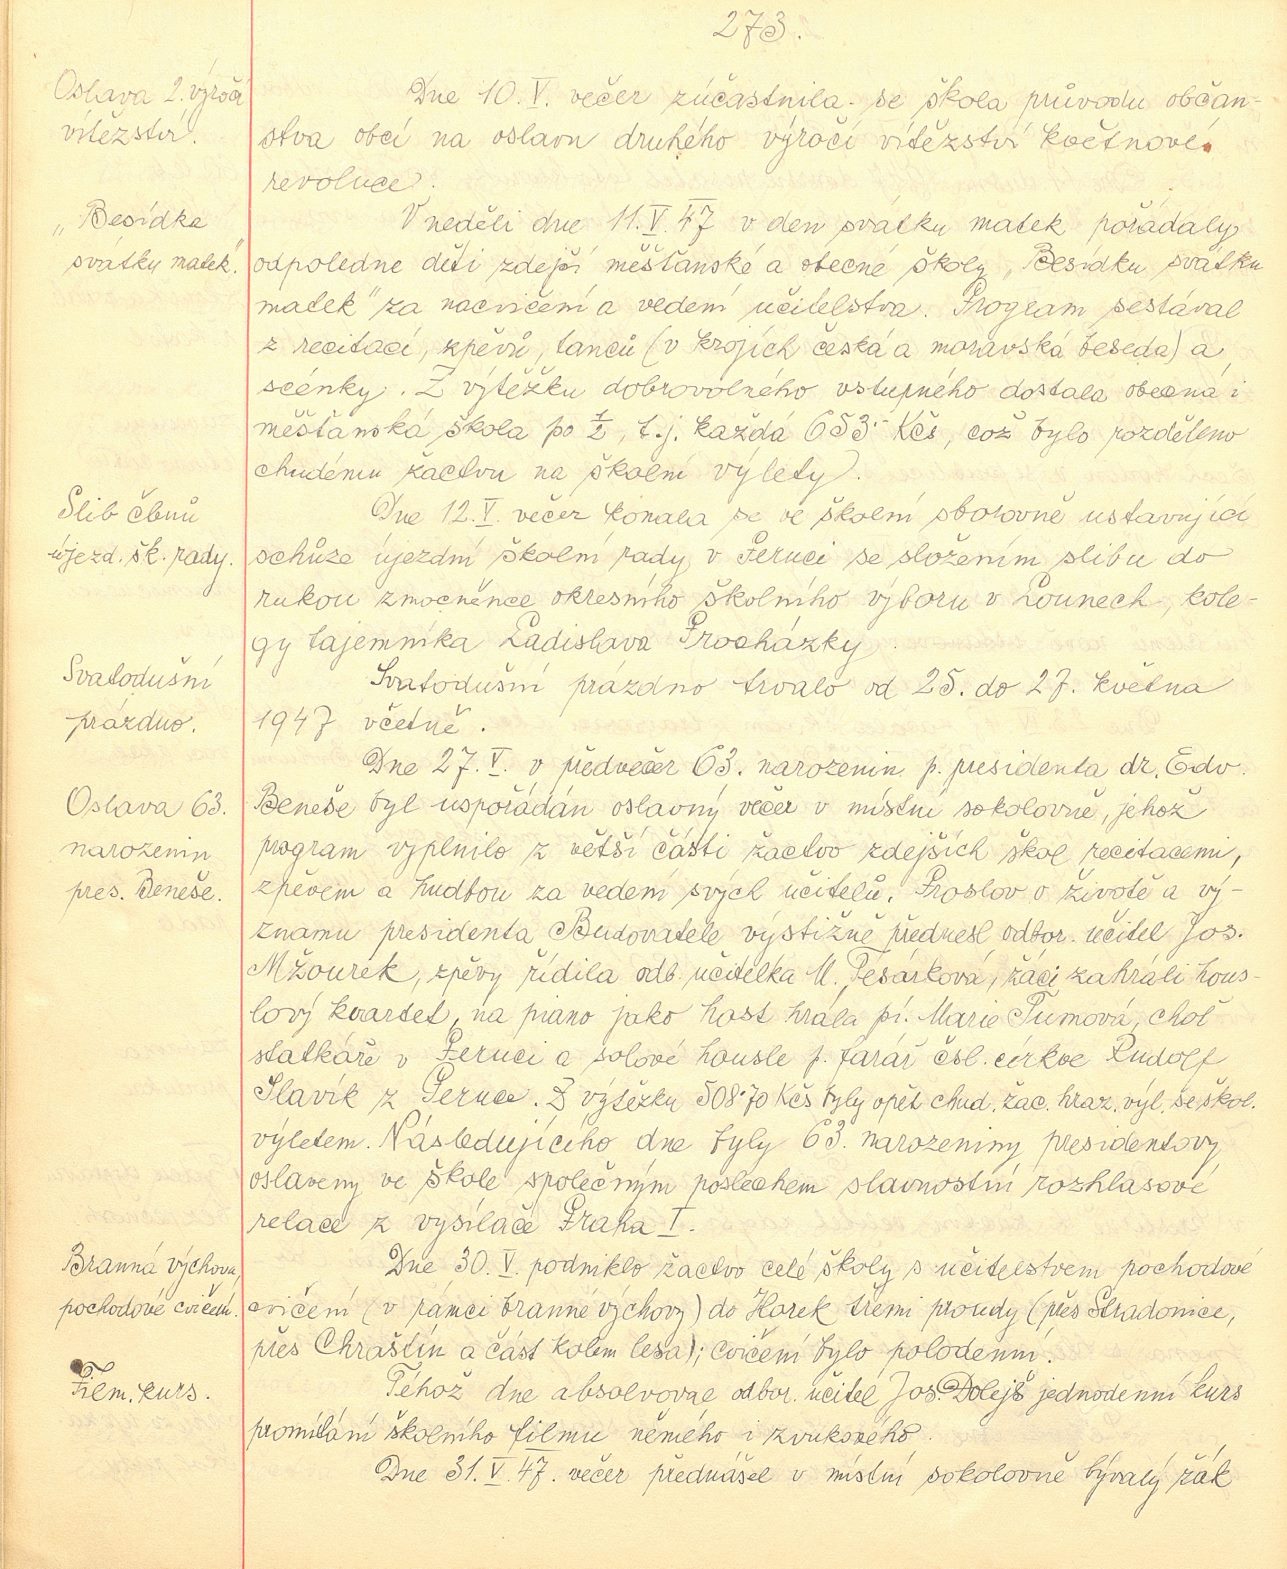 273.
Oslava 2. výročí
vítězství.
Dne 10. V. večer zúčastnila se škola průvodu občan-
stva obcí na oslavu druhého výročí vítězství květnové
revoluce.
„Besídka
svátku matek".
V neděli dne 11. V. 47 v den svátku matek pořádaly
odpoledne děti zdejší měšťanské a obecné školy „Besídku svátku
matek" za nacvičení a vedení učitelstva. Program sestával
z recitací, zpěvů, tanců (v krojích česká a moravská beseda) a
scénky. Z výtěžku dobrovolného vstupného dostala obecná i
měšťanská škola po ½, t.j. každá 653.- Kčs, což bylo rozděleno
chudému žactvu na školní výlety.
Slib čbnů
újezd. šk. rady.
Dne 12. V. večer konala se ve školní sborovně ustavující
schůze újezdní školní rady v Peruci se složením slibu do
rukou zmocněnce okresního školního výboru v Lounech, kole-
gy tajemníka Ladislava Procházky.
Svatodušní
prázdno.
Svatodušní prázdno trvalo od 25. do 27. května
1947 včetně.
Oslava 63.
narozenin
pres. Beneše.
Dne 27. V. v předvečer 63. narozenin p. presidenta dr. Edv.
Beneše byl uspořádán oslavný večer v místní sokolovně, jehož
program vyplnilo z větší části žactvo zdejších škol recitacemi,
zpěvem a hudbou za vedení svých učitelů. Proslov o životě a vý-
znamu presidenta Budovatele výstižně přednesl odbor. učitel Jos.
Mžourek, zpěvy řídila odb. učitelka M. Tesárková, žáci zahráli hous-
lový kvartet, na piano jako host hrála pí. Marie Tumová, choť
statkáře v Peruci a solové housle p. farář čsl. církve Rudolf
Slavík z Peruce. Z výtěžku 508.70 Kčs byly opět chud. žac. hraz. výl. se škol.
výletem. Následujícího dne byly 63. narozeniny presidentovy
oslaveny ve škole společným poslechem slavnostní rozhlasové
relace z vysílače Praha I.
Branná výchova,
pochodové cvičení.
Dne 30. V. podniklo žactvo celé školy s učitelstvem pochodové
cvičení (v rámci branné výchovy) do Horek třemi proudy (přes Stradonice,
přes Chraštín a část kolem lesa); cvičení bylo polodenní.
Film. kurs.
Téhož dne absolvoval odbor. učitel Jos. Dolejš jednodenní kurs
promítání školního filmu němého i zvukového.
Dne 31. V. 47. večer přednášel v místní sokolovně bývalý žák